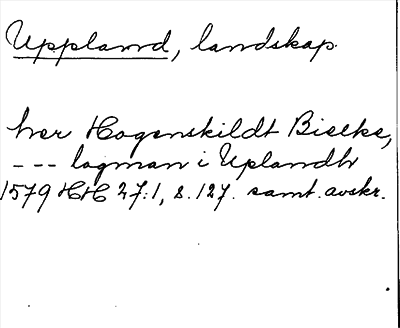 Uppland, landskap.
her Hogenskildt Bielke,
--- lagman i Uplandh
1579 HH 27:1, s. 127. samt. avskr.